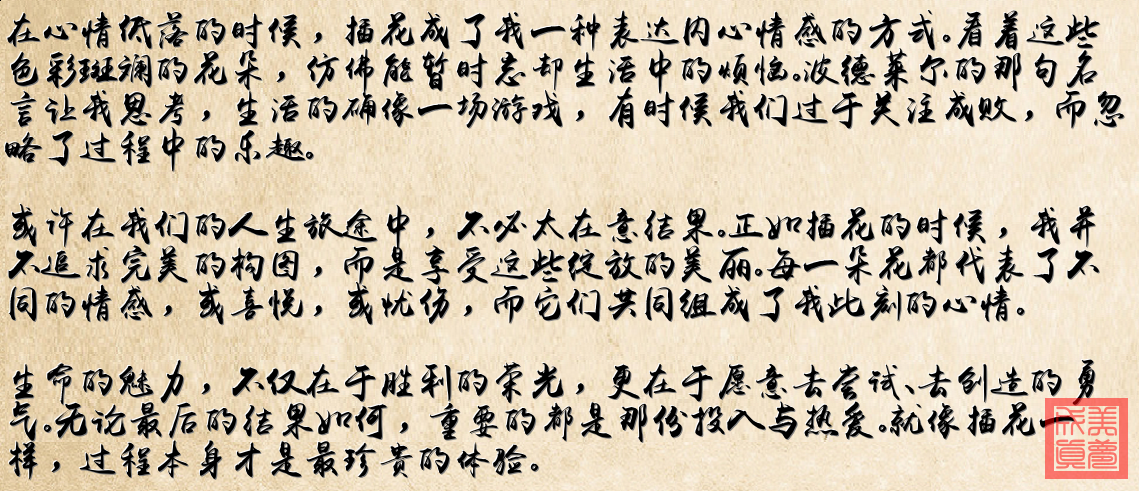 在心情低落的时候，插花成了我一种表达内心情感的方式。看着这些
色彩斑斓的花朵，仿佛能暂时忘却生活中的烦恼。波德莱尔的那句名
言让我思考，生活的确像一场游戏，有时候我们过于关注成败，而忽
略了过程中的乐趣。
或许在我们的人生旅途中，不必太在意结果。正如插花的时候，我并
不追求完美的构图，而是享受这些绽放的美丽。每一朵花都代表了不
同的情感，或喜悦，或忧伤，而它们共同组成了我此刻的心情。
生命的魅力，不仅在于胜利的荣光，更在于愿意去尝试、去创造的勇
气。无论最后的结果如何，重要的都是那份投入与热爱。就像插花一
样，过程本身才是最珍贵的体验。
美梦成真